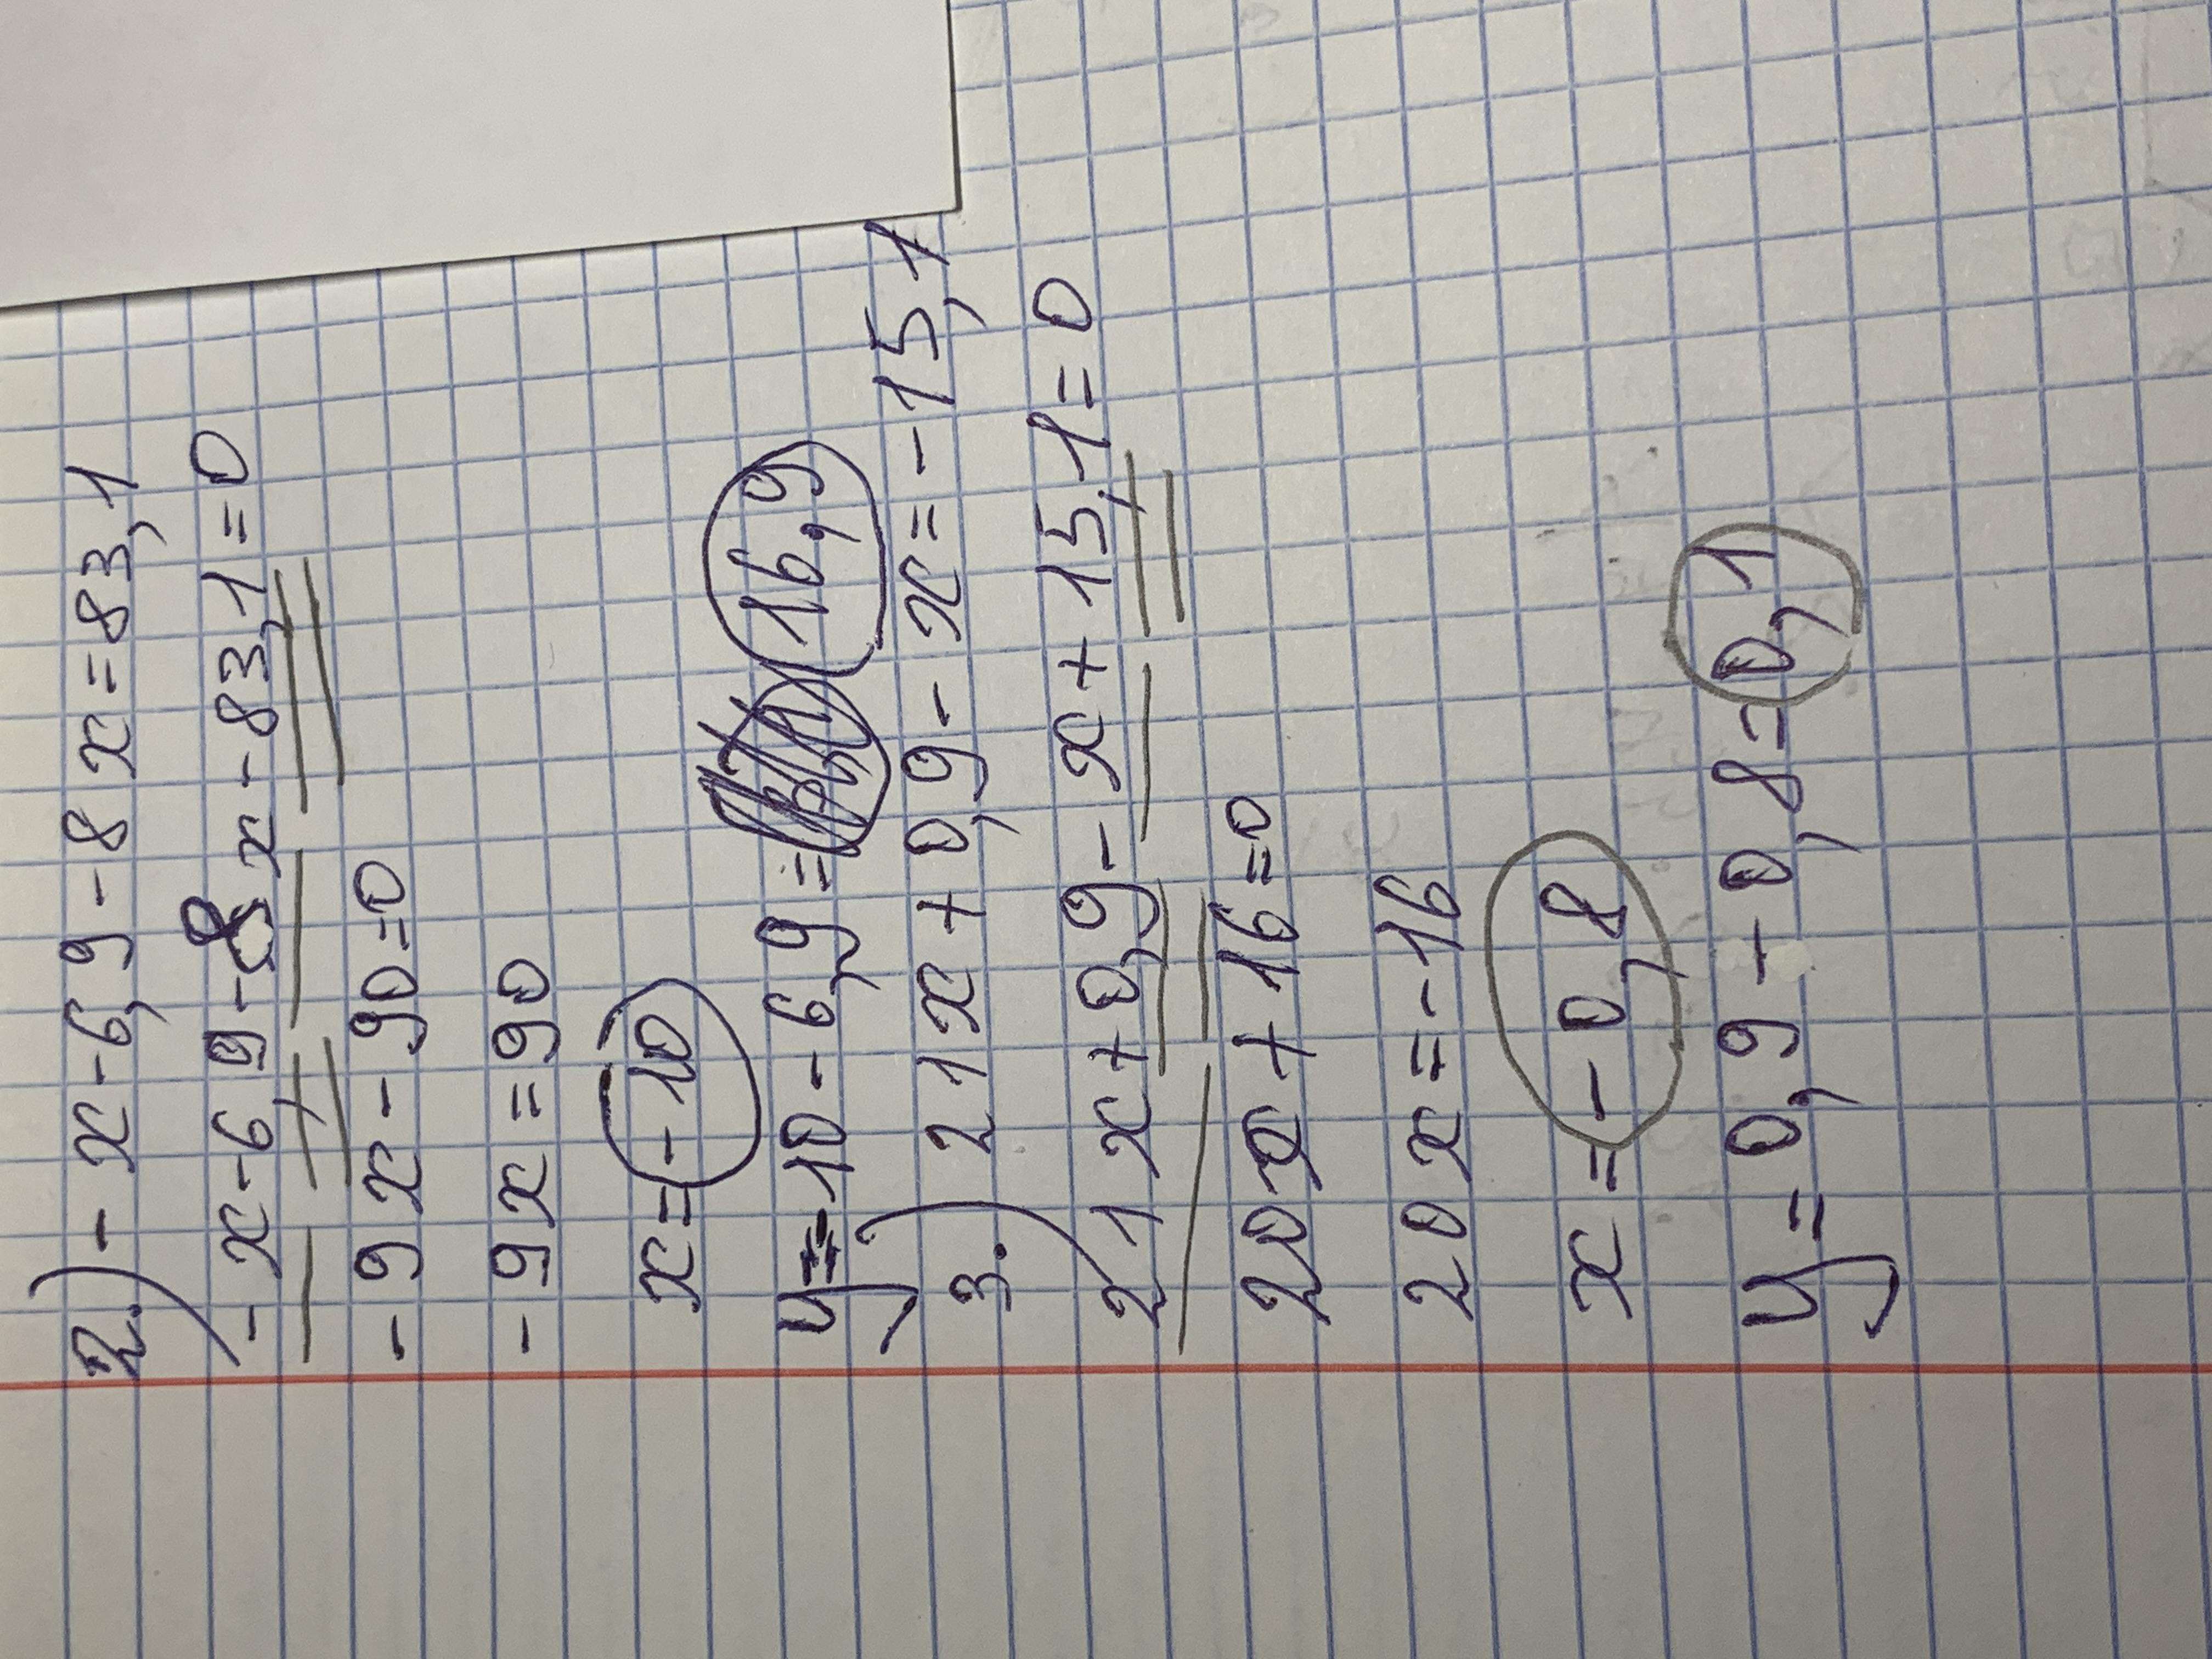 2.) - x - 6,9 - 8x = 83,1
- x - 6,9 - 8x - 83,1 = 0
- 9x - 90 = 0
- 9x = 90
x = -10
y = -10 - 6,9 = 16,9
3.) 21x + 0,9 - x = -15,1
21x + 0,9 - x + 15,1 = 0
20x + 16 = 0
20x = -16
x = -0,8
y = 0,9 - 0,8 = 0,1